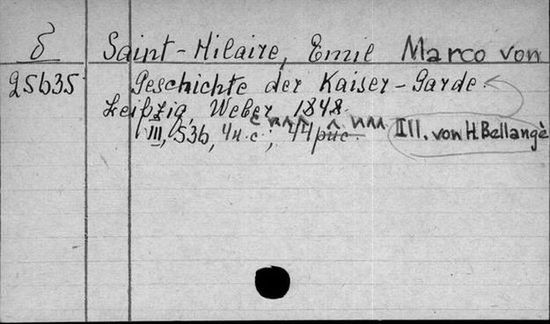 δ Saint-Hilaire, Emil Marco von
25635 Geschichte der Kaiser-Garde.
Leipzig, Weber, 1848.
III, 536, 4 н. с.; 44 рис. Ill. von H. Bellangè